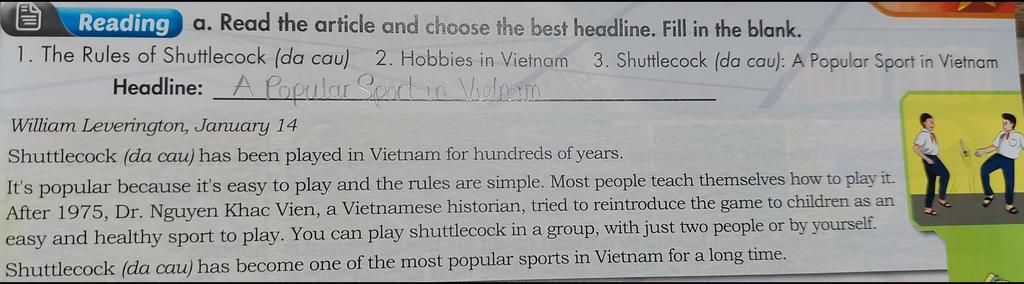 Reading a. Read the article and choose the best headline. Fill in the blank.
1. The Rules of Shuttlecock (da cau) 2. Hobbies in Vietnam 3. Shuttlecock (da cau): A Popular Sport in Vietnam
Headline: A Popular Sport in Vietnam
William Leverington, January 14
Shuttlecock (da cau) has been played in Vietnam for hundreds of years.
It's popular because it's easy to play and the rules are simple. Most people teach themselves how to play it.
After 1975, Dr. Nguyen Khac Vien, a Vietnamese historian, tried to reintroduce the game to children as an
easy and healthy sport to play. You can play shuttlecock in a group, with just two people or by yourself.
Shuttlecock (da cau) has become one of the most popular sports in Vietnam for a long time.